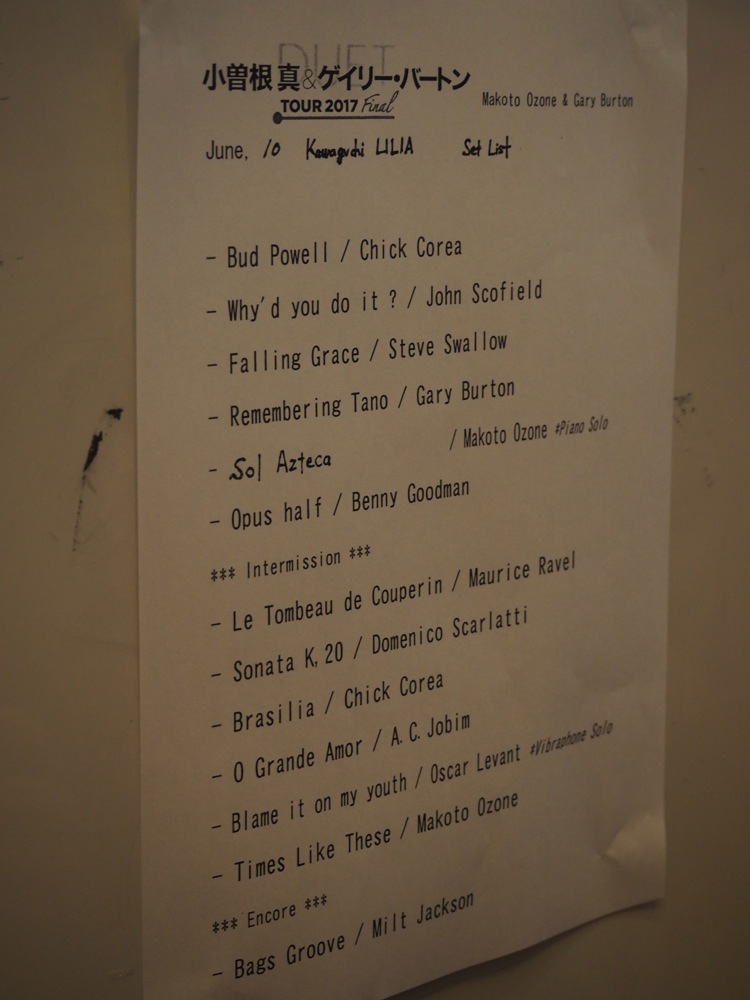 DUET
小曽根 真&ゲイリー・バートン
TOUR 2017 Final
Makoto Ozone & Gary Burton
June, 10 Kawaguchi LILIA Set List
- Bud Powell / Chick Corea
- Why'd you do it ? / John Scofield
- Falling Grace / Steve Swallow
- Remembering Tano / Gary Burton
- Sol Azteca / Makoto Ozone #Piano Solo
- Opus half / Benny Goodman
*** Intermission ***
- Le Tombeau de Couperin / Maurice Ravel
- Sonata K,20 / Domenico Scarlatti
- Brasilia / Chick Corea
- O Grande Amor / A.C.Jobim
- Blame it on my youth / Oscar Levant #Vibraphone Solo
- Times Like These / Makoto Ozone
*** Encore ***
- Bags Groove / Milt Jackson